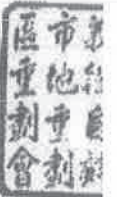 自辦
市地重劃
區重劃會